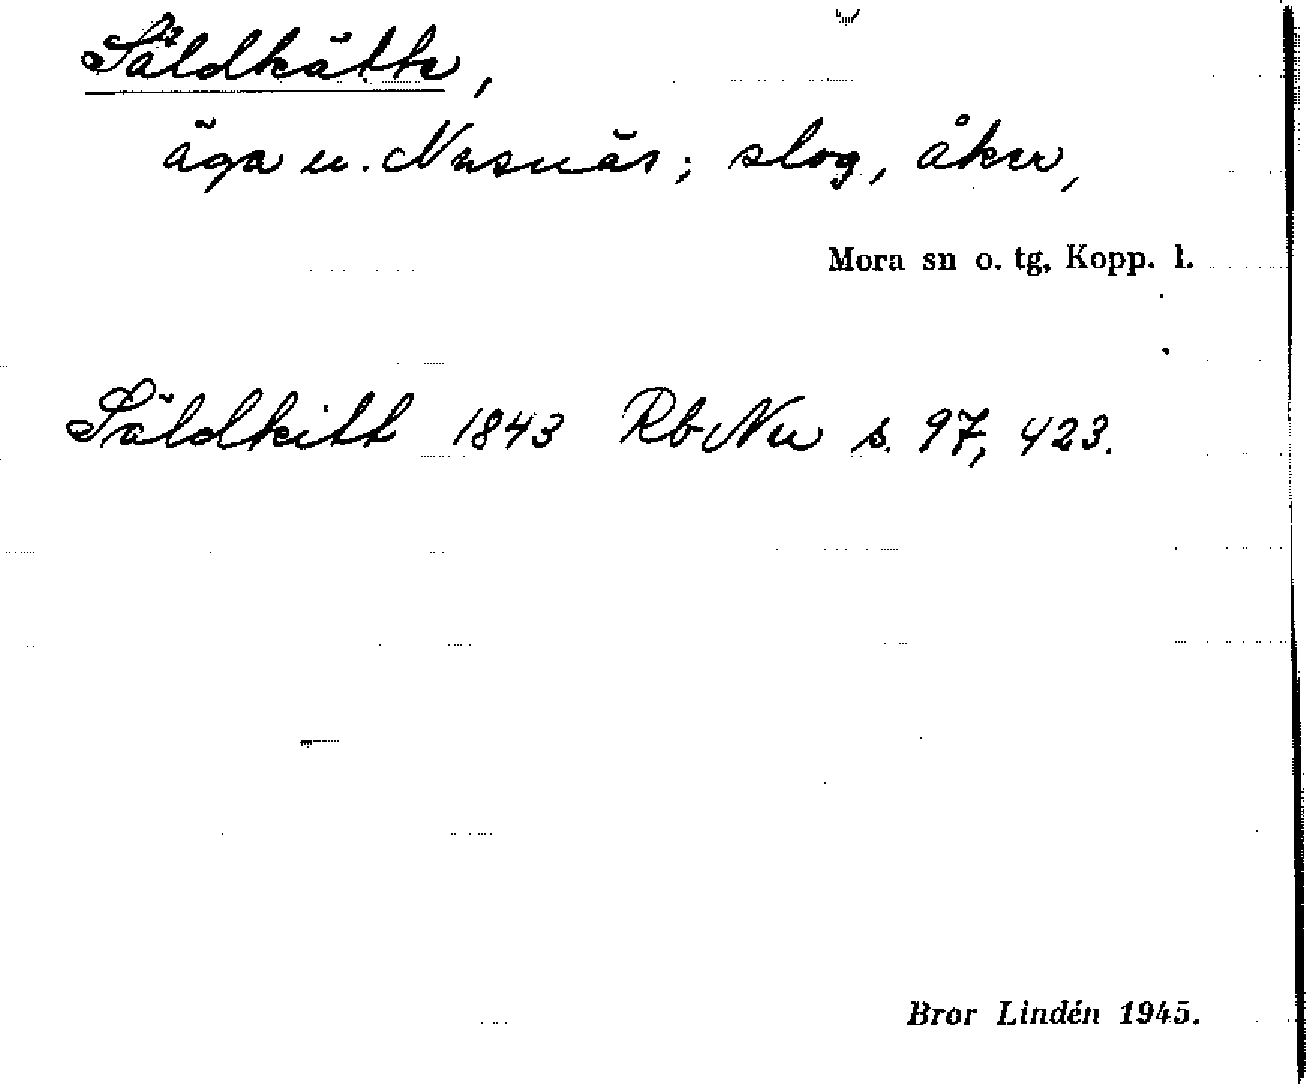 Säldkätte,
äga u. Nusnäs; slog, åker,
Mora sn o. tg, Kopp. l.
Säldkitt 1843 RbNu s. 97, 423.
Bror Lindén 1945.